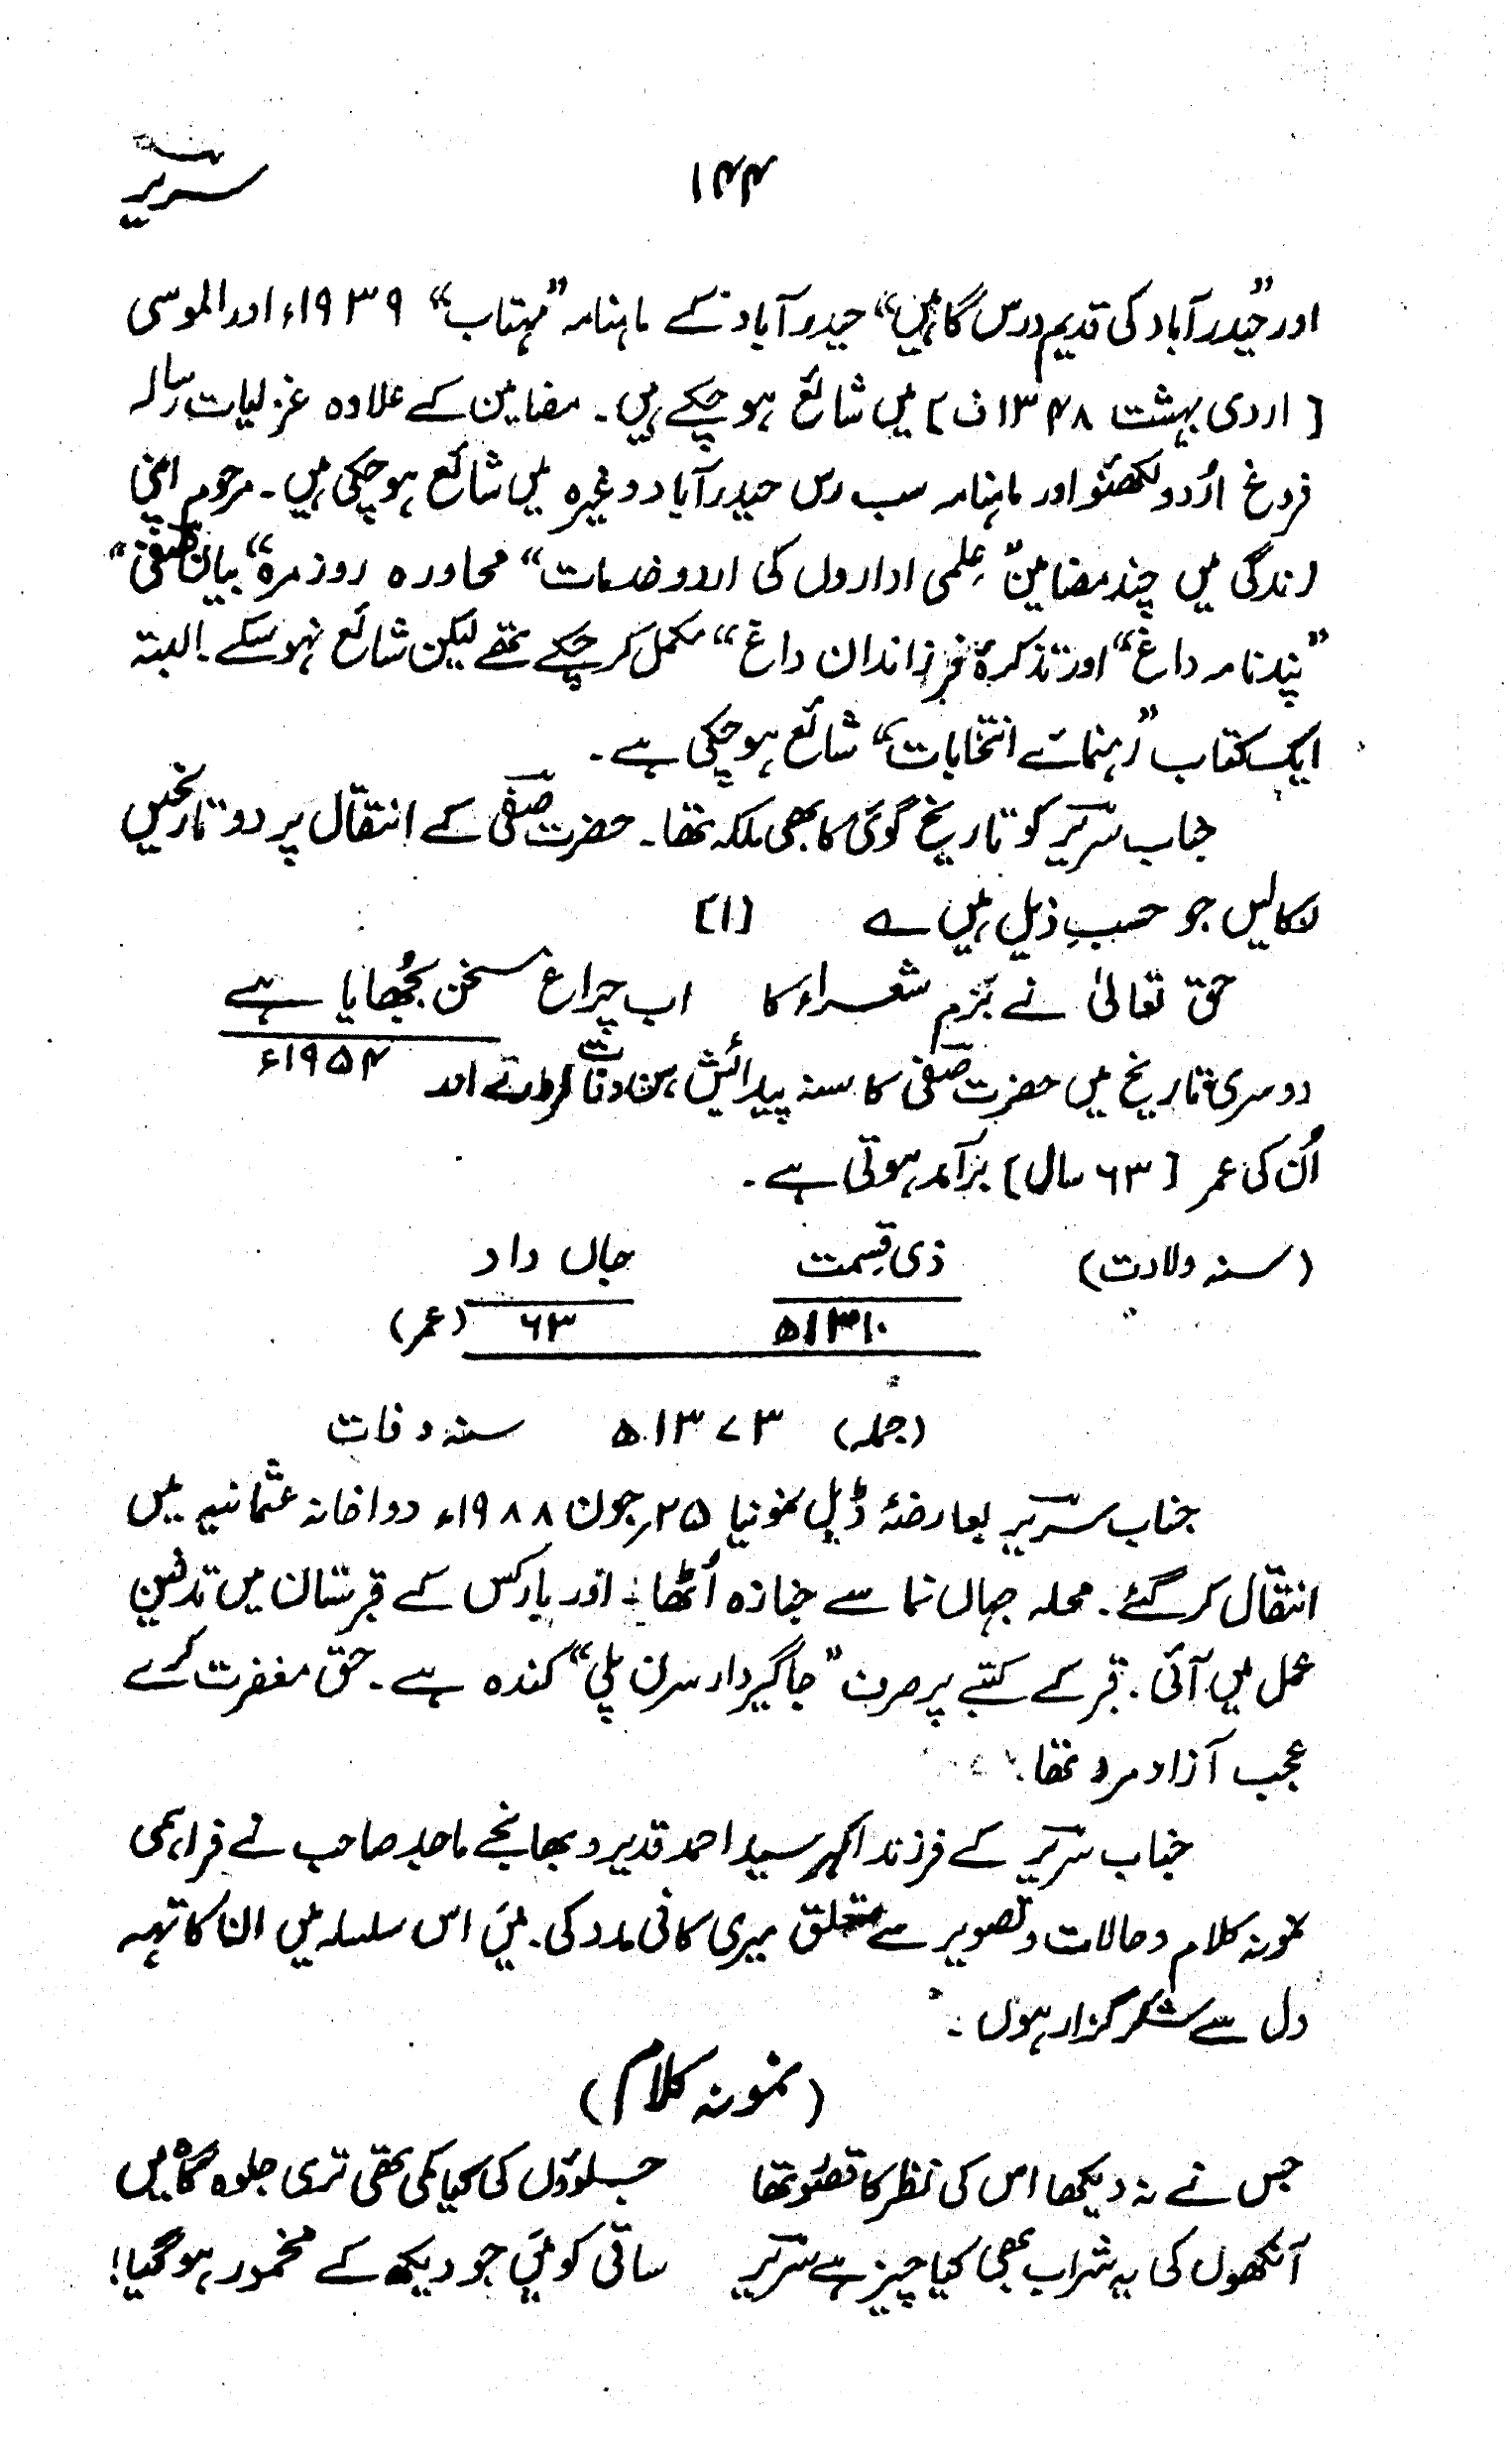 ۱۴۴
سریر
اور ”حیدرآباد کی قدیم درس گاہیں“ حیدرآباد کے ماہنامہ ”مہتاب“ ۱۹۳۹ء اور الموسی
[اردی بہشت ۱۳۴۸ف] میں شائع ہوچکے ہیں۔ مضامین کے علاوہ غزلیات رسالہ
فروغ اُردو لکھنؤ اور ماہنامہ سب رس حیدرآباد وغیرہ میں شائع ہوچکی ہیں۔ مرحوم اپنی
زندگی میں چند مضامین ”عِلمی اداروں کی اردو خدمات“ محاورہ روزمرہ“ بیان صفی“
”پندنامہ داغ“ اور تذکرۂ فرزاندان داغ“ مکمل کرچکے تھے لیکن شائع نہوسکے۔ البتہ
ایک کتاب ”رہنمائے انتخابات“ شائع ہوچکی ہے۔
جناب سریر کو تاریخ گوئی کا بھی ملکہ تھا۔ حضرت صفی کے انتقال پر دو تاریخیں
نکالیں جو حسبِ ذیل ہیں ؎ [۱]
حق تعالیٰ نے بزم شعراء کا اب چراغ سخن بُجھایا ہے
۱۹۵۴ء
دوسری تاریخ میں حضرت صفی کا سنہ پیدائش، سن وفات اور
اُن کی عمر [۶۳ سال] برآمد ہوتی ہے۔
(سنہ ولادت) ذی قسمت جاں داد
۱۳۱۰ھ ۶۳ (عمر)
(جملہ) ۱۳۷۳ھ سنہ وفات
جناب سریر بعارضۂ ڈبل نمونیا ۲۵؍جون ۱۹۸۸ء دواخانہ عثمانیہ میں
انتقال کرگئے۔ محلہ جہاں نما سے جنازہ اُٹھا۔ اور بارکس کے قبرستان میں تدفین
عمل میں آئی۔ قبر کے کتبے پر صرف ”جاگیردار سرن پلی“ کندہ ہے۔ حق مغفرت کرے
عجب آزاد مرد تھا۔
جناب سریر کے فرزند اکبر سید احمد قدیر و بھانجے ماجد صاحب نے فراہمی
نمونہ کلام و حالات و تصویر سے متعلق میری کافی مدد کی۔ میں اس سلسلہ میں ان کا تہہ
دل سے شکر گزار ہوں۔
(نمونہ کلام)
جس نے نہ دیکھا اس کی نظر کا قصور تھا جلوؤں کی کیا کمی تھی تری جلوہ گاہ میں
آنکھوں کی یہ شراب بھی کیا چیز ہے سریر ساقی کو میں جو دیکھ کے مخمور ہوگیا!